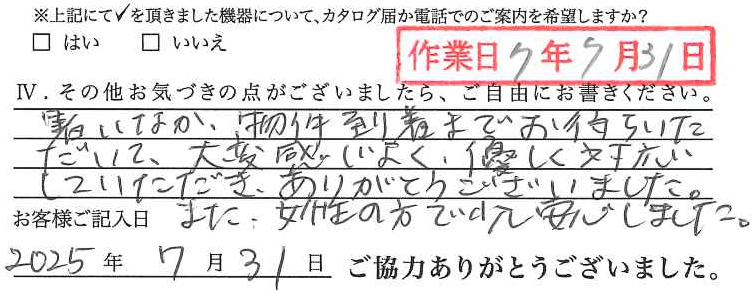 ※上記にて✓を頂きました機器について、カタログ届か電話でのご案内を希望しますか？
□ はい　□ いいえ
作業日 7年7月31日
Ⅳ．その他お気づきの点がございましたら、ご自由にお書きください。
暑いなか、物件到着までお待ちいた
だいて、大変感じよく、優しく対応
していただき、ありがとうございました。
お客様ご記入日　また、女性の方で安心しました。
2025年 7月31日 ご協力ありがとうございました。